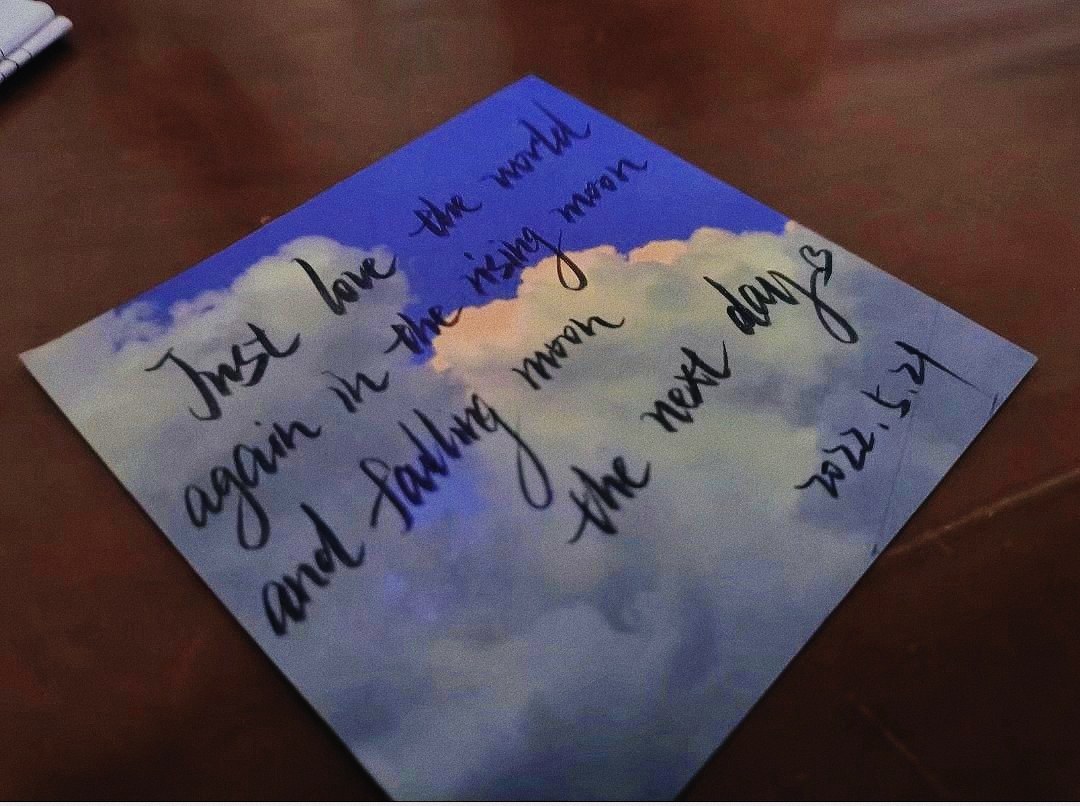 Just love the world
again in the rising moon
and falling moon
the next day
2022.5.21